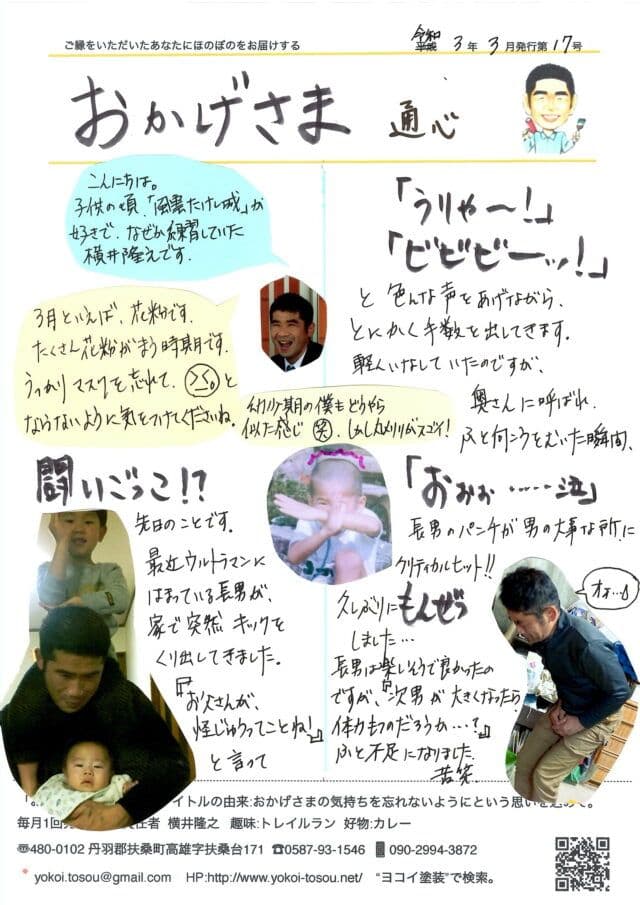 ご縁をいただいたあなたにほのぼのをお届けする
令和
平成 3年 3月発行第17号
おかげさま 通心
こんにちは。
子供の頃、「風雲たけし城」が
好きで、なぜか練習していた
横井隆之です。
3月といえば、花粉です。
たくさん花粉がまう時期です。
うっかりマスクを忘れて、 と
ならないように気をつけてくださいね。
闘いごっこ!?
先日のことです。
最近ウルトラマンに
はまっている長男が、
家で突然キックを
くり出してきました。
『お父さんが、
怪じゅうってことね!』
と言って
「うりゃ〜!」
「ビビビーッ!」
と色んな声をあげながら、
とにかく手数を出してきます。
軽くいなしていたのですが、
奥さんに呼ばれ、
ふと向こうをむいた瞬間、
幼少期の僕もどうやら
似た感じ 笑 。しかし丸刈りがスゴイ!
「おぉぉ……泣」
長男のパンチが男の大事な所に
クリティカルヒット!!
オォ…
久しぶりにもんぜつ
しました…
長男は楽しそうで良かったの
ですが、『次男が大きくなったら
体力もつのだろうか…?』
ふと不足になりました。
苦笑
イトルの由来:おかげさまの気持ちを忘れないようにという思いを込めて。
毎月1回発 任者 横井隆之 趣味:トレイルラン 好物:カレー
〒480-0102 丹羽郡扶桑町高雄字扶桑台171 ☎0587-93-1546 090-2994-3872
yokoi.tosou@gmail.com HP:http://www.yokoi-tosou.net/ “ヨコイ塗装”で検索。